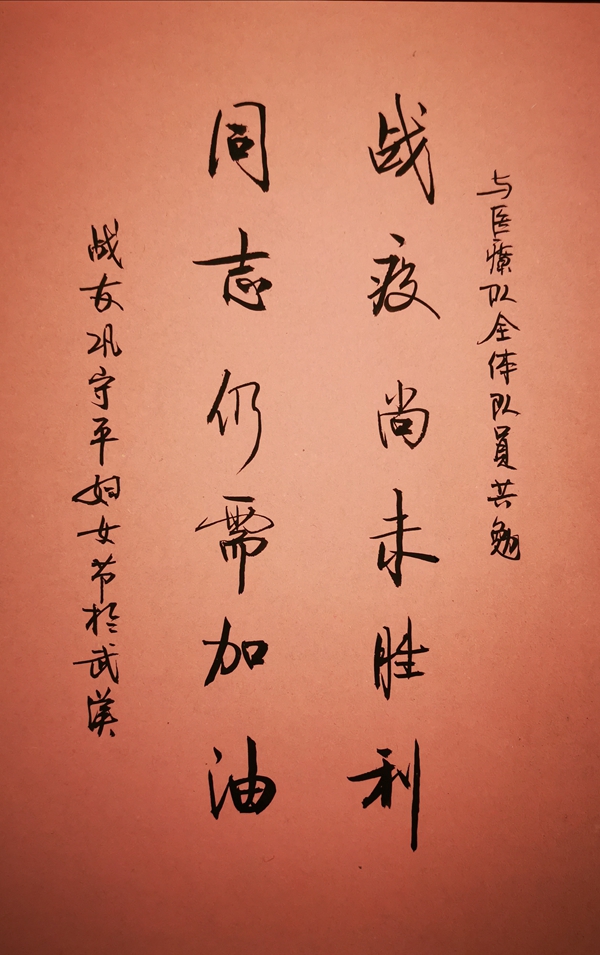 与医疗队全体队员共勉
战疫尚未胜利
同志仍需加油
战友巩守平妇女节于武汉